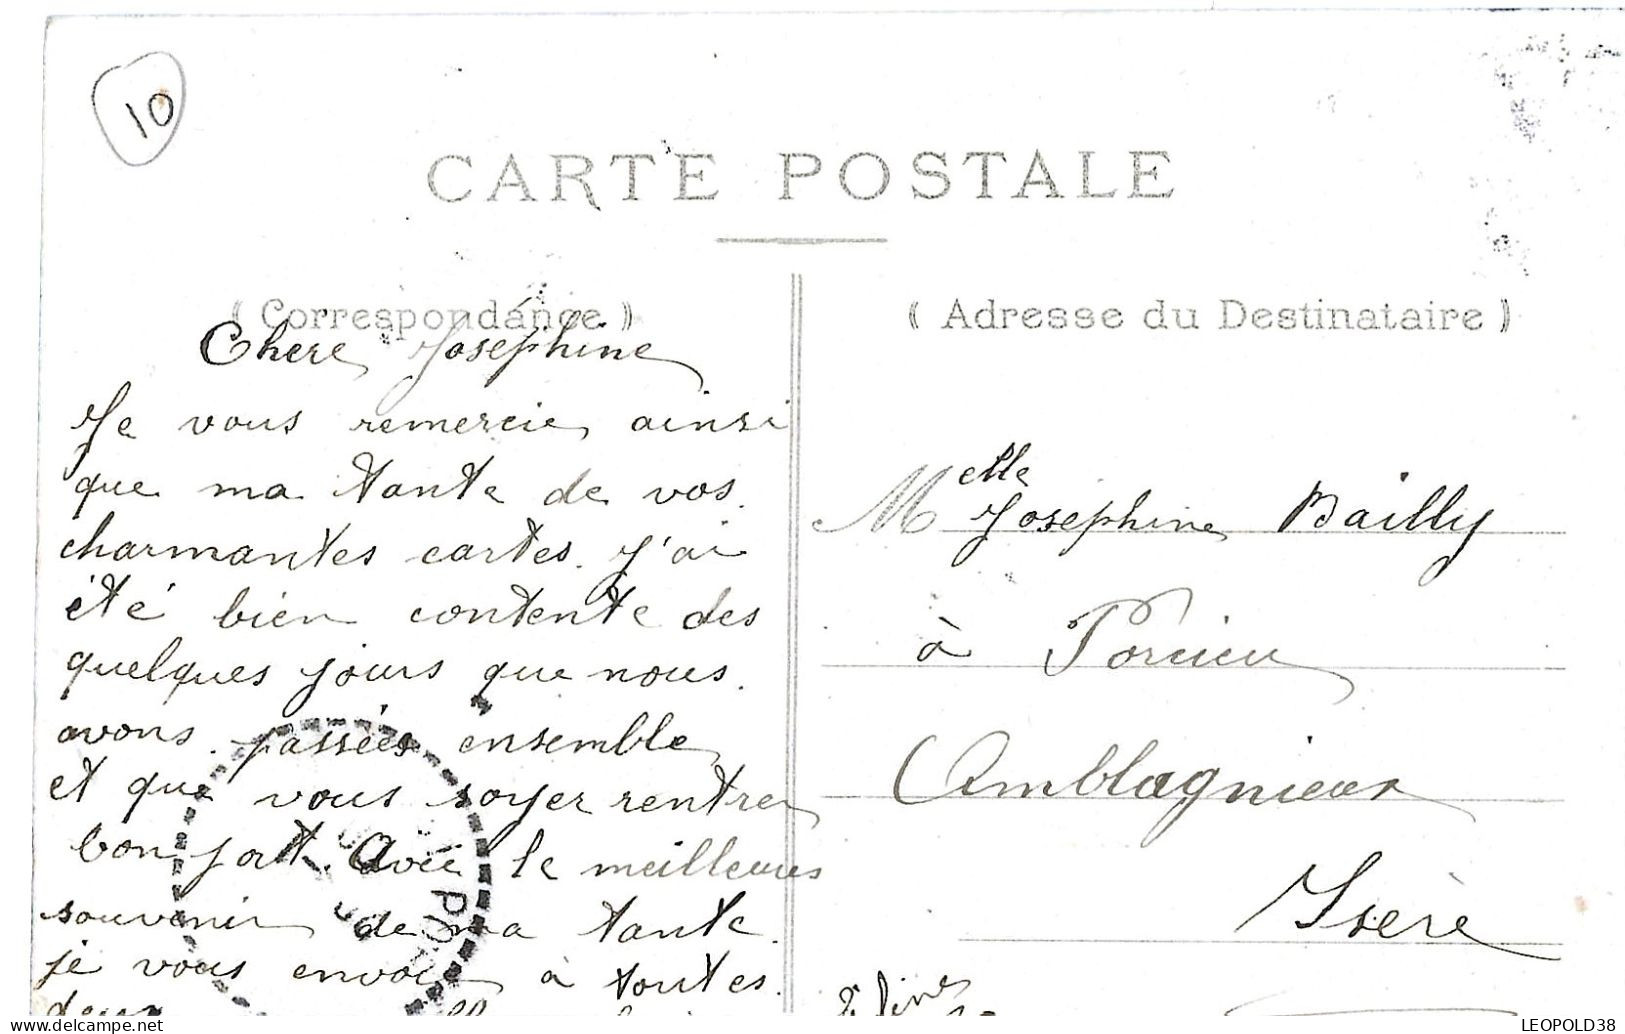 10
CARTE POSTALE
( Correspondance )
Chere Josephine
Je vous remercie ainsi
que ma tante de vos
charmantes cartes. J'ai
été bien contente des
quelques jours que nous
avons passées ensemble
et que vous soyer rentrer
bon port. Avec le meilleures
souvenir de ma tante
je vous envoi à toutes
deux
( Adresse du Destinataire )
Melle Josephine Bailly
à Porcieu
Amblagnieux
Isère
LEOPOLD38
delcampe.net